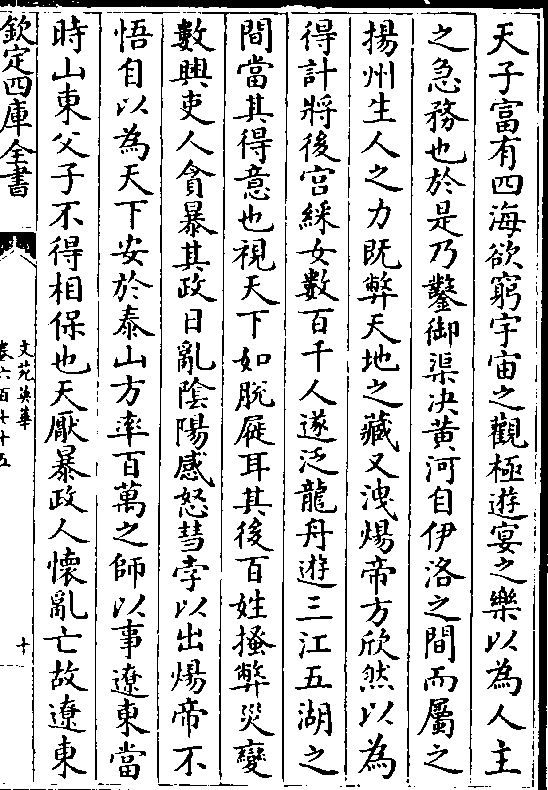 天子富有四海欲窮宇宙之觀極遊宴之樂以為人主
之急務也於是乃鑿御渠決黃河自伊洛之間而屬之
揚州生人之力既弊天地之藏又洩煬帝方欣然以為
得計將後宮綵女數百千人遂泛龍舟遊三江五湖之
間當其得意也視天下如脫屣耳其後百姓搔弊災變
數興吏人貪暴其政日亂陰陽感怒彗孛以出煬帝不
悟自以為天下安於泰山方率百萬之師以事遼東當
時山東父子不得相保也天厭暴政人懷亂亡故遼東
欽定四庫全書
文苑英華
卷六百七十五
十